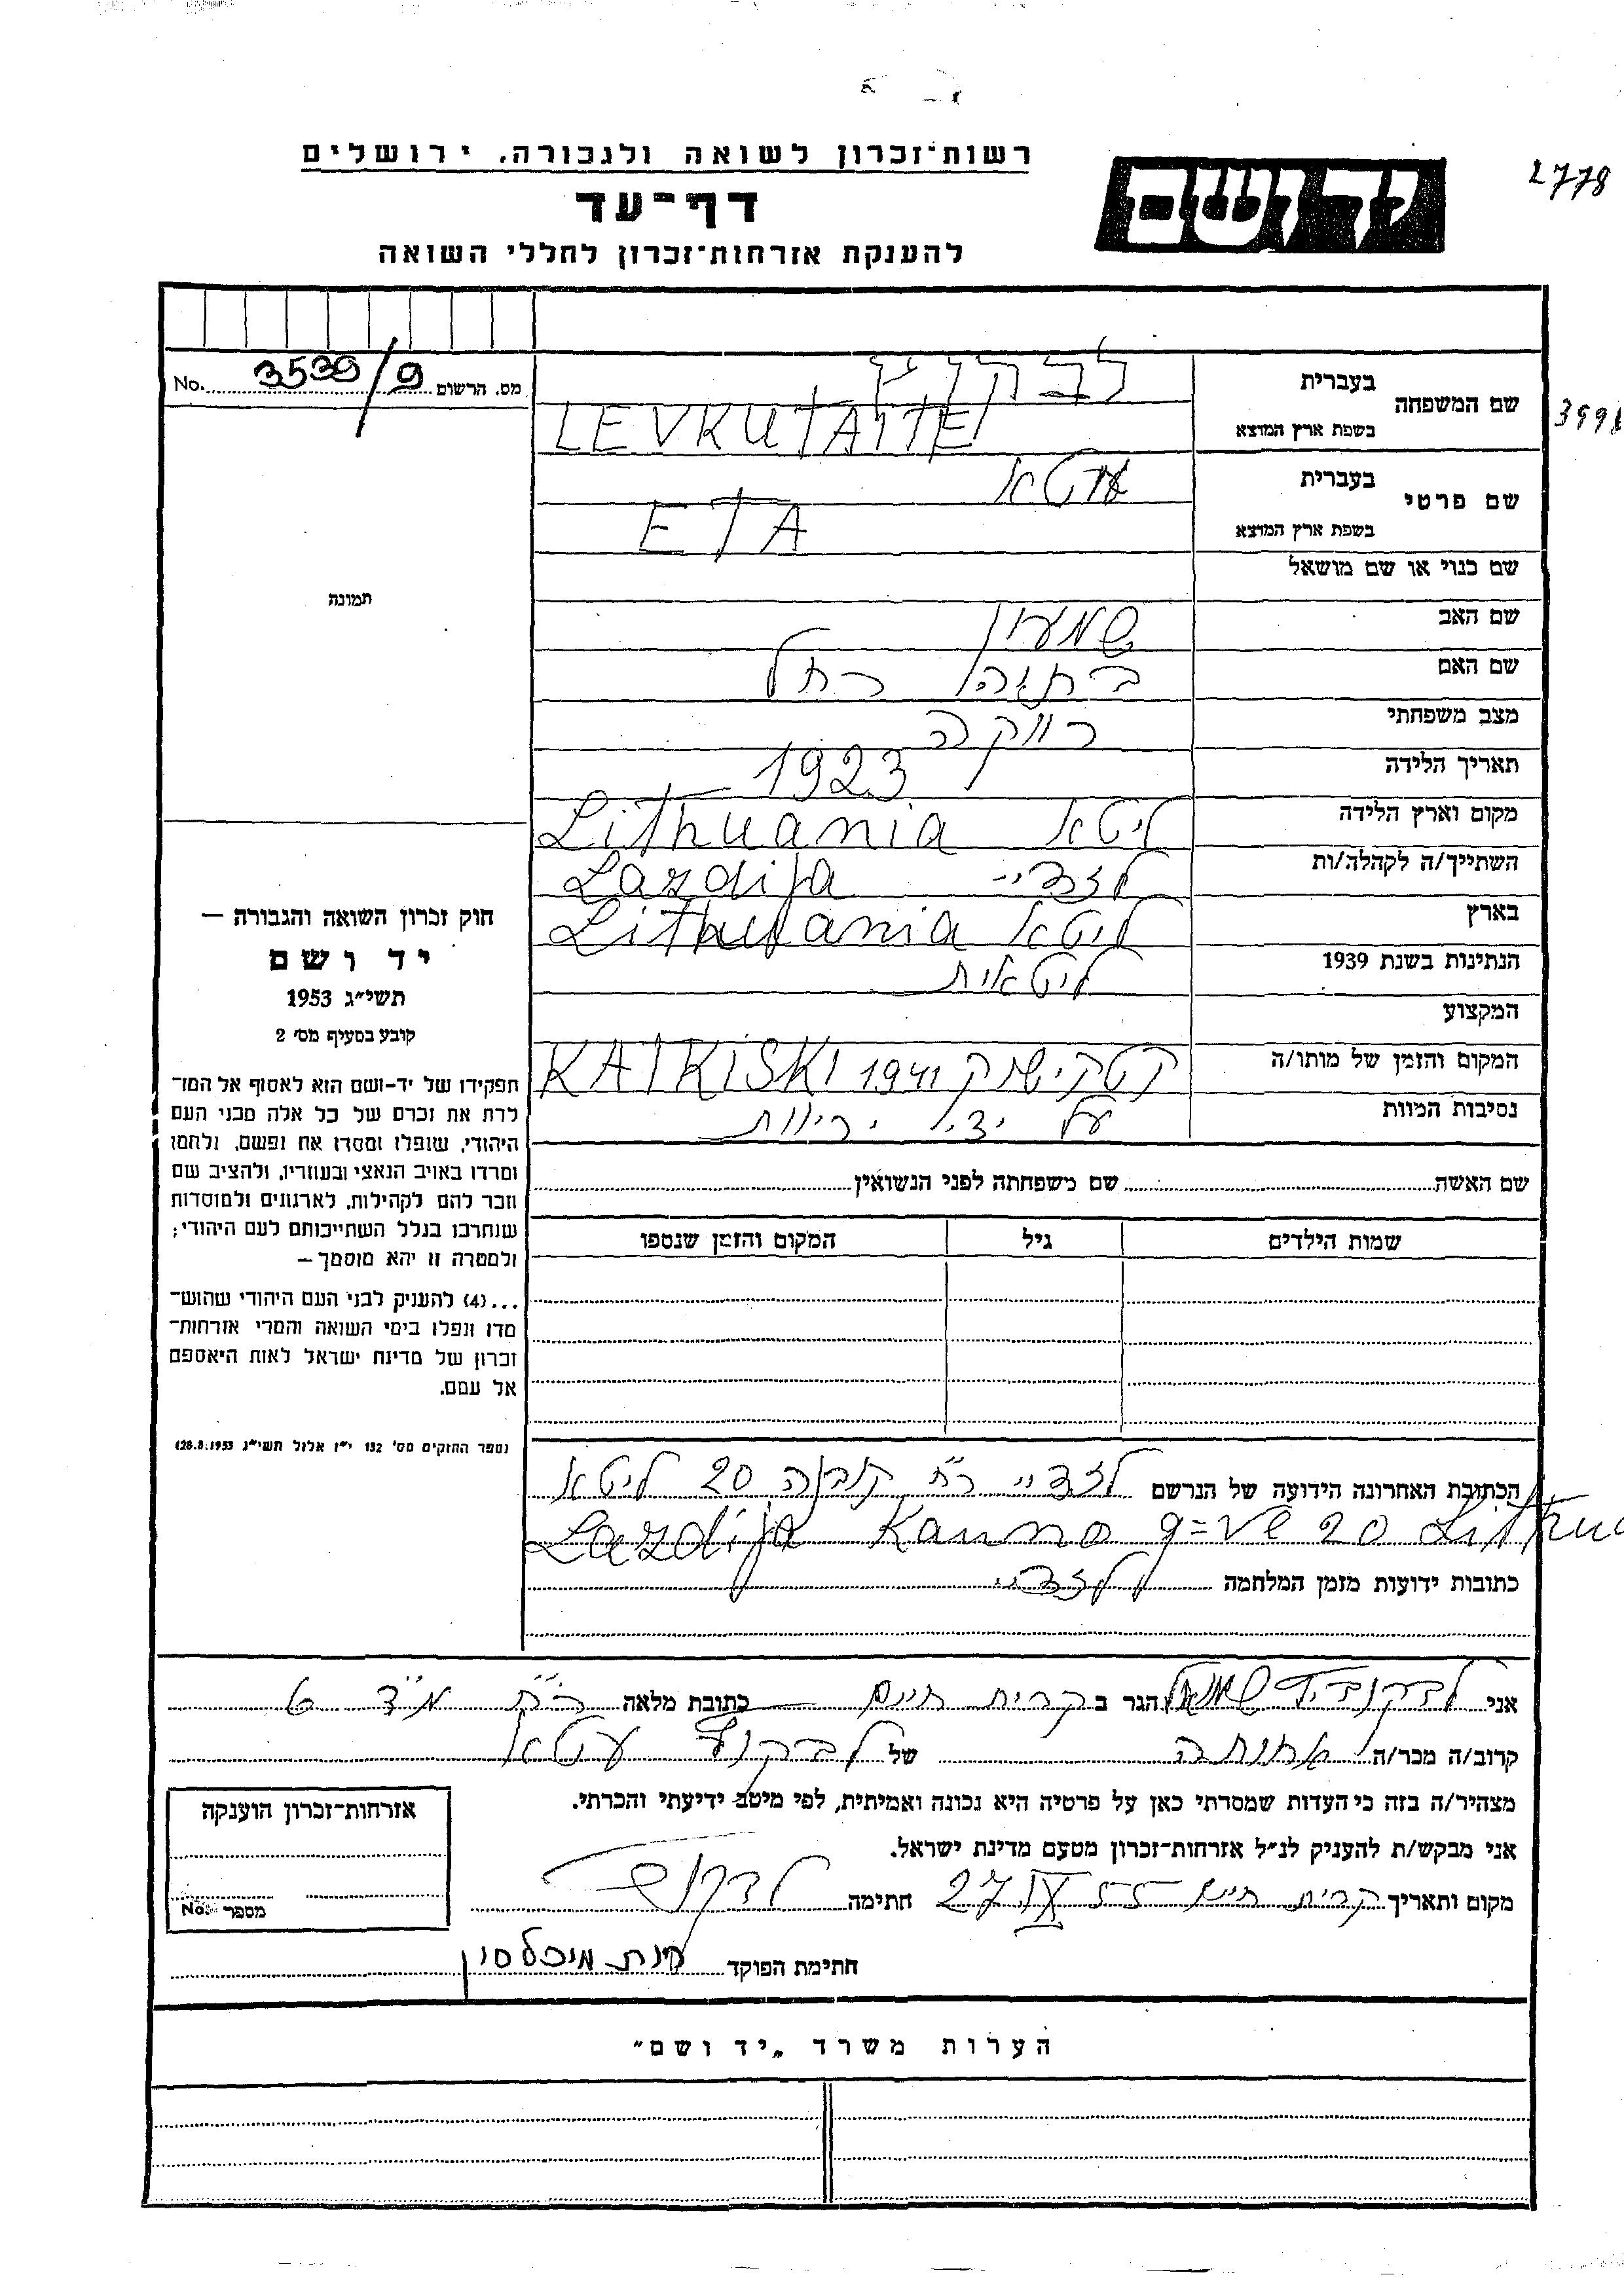 רשות־זכרון לשואה ולגבורה, ירושלים
דף־עד
להענקת אזרחות־זכרון לחללי השואה
יד ושם
2778
No. 3539/9 מס. הרשום
שם המשפחה
בעברית
בשפת ארץ המוצא LEVKUTAITE
3998
שם פרטי
בעברית
בשפת ארץ המוצא ETA
שם כנוי או שם מושאל
תמונה
שם האב שמעון
שם האם רחל
מצב משפחתי רווקה
תאריך הלידה 1923
מקום וארץ הלידה ליטא Lithuania
השתייך/ה לקהלה/ות לזדיי Lazdija
בארץ ליטא Lithuania
הנתינות בשנת 1939 ליטאית
המקצוע
המקום והזמן של מותו/ה קטקישוק 1941 KATKISKI
נסיבות המוות על ידי יריות
חוק זכרון השואה והגבורה —
יד ושם
תשי״ג 1953
קובע בסעיף מס׳ 2
תפקידו של יד־ושם הוא לאסוף אל המו־
לדת את זכרם של כל אלה מבני העם
היהודי, שנפלו ומסרו את נפשם, נלחמו
ומרדו באויב הנאצי ובעוזריו, ולהציב שם
וזכר להם לקהילות, לארגונים ולמוסדות
שנחרבו בגלל השתייכותם לעם היהודי;
ולמטרה זו יהא מוסמך —
...(4) להעניק לבני העם היהודי שהוש־
מדו ונפלו בימי השואה והמרי אזרחות־
זכרון של מדינת ישראל לאות היאספם
אל עמם.
(ספר החוקים מס׳ 132 י״ז אלול תשי״ג 28.8.1953)
שם האשה שם משפחתה לפני הנשואין
שמות הילדים גיל המקום והזמן שנספו
הכתובת האחרונה הידועה של הנרשם לזדיי רח׳ קובנה 20 ליטא
Lazdija Kauno g=ve 20 Lithua
כתובות ידועות מזמן המלחמה לזדיי
אני הגר ב קרית חיים כתובת מלאה רח׳ מ״ד 6
קרוב/ה מכר/ה של עטא
מצהיר/ה בזה כי העדות שמסרתי כאן על פרטיה היא נכונה ואמיתית, לפי מיטב ידיעתי והכרתי.
אני מבקש/ת להעניק לנ״ל אזרחות־זכרון מטעם מדינת ישראל.
מקום ותאריך קרית חיים 27 IX 55 חתימה
חתימת הפוקד מיכלסון
אזרחות־זכרון הוענקה
מספר No.
הערות משרד „יד ושם״